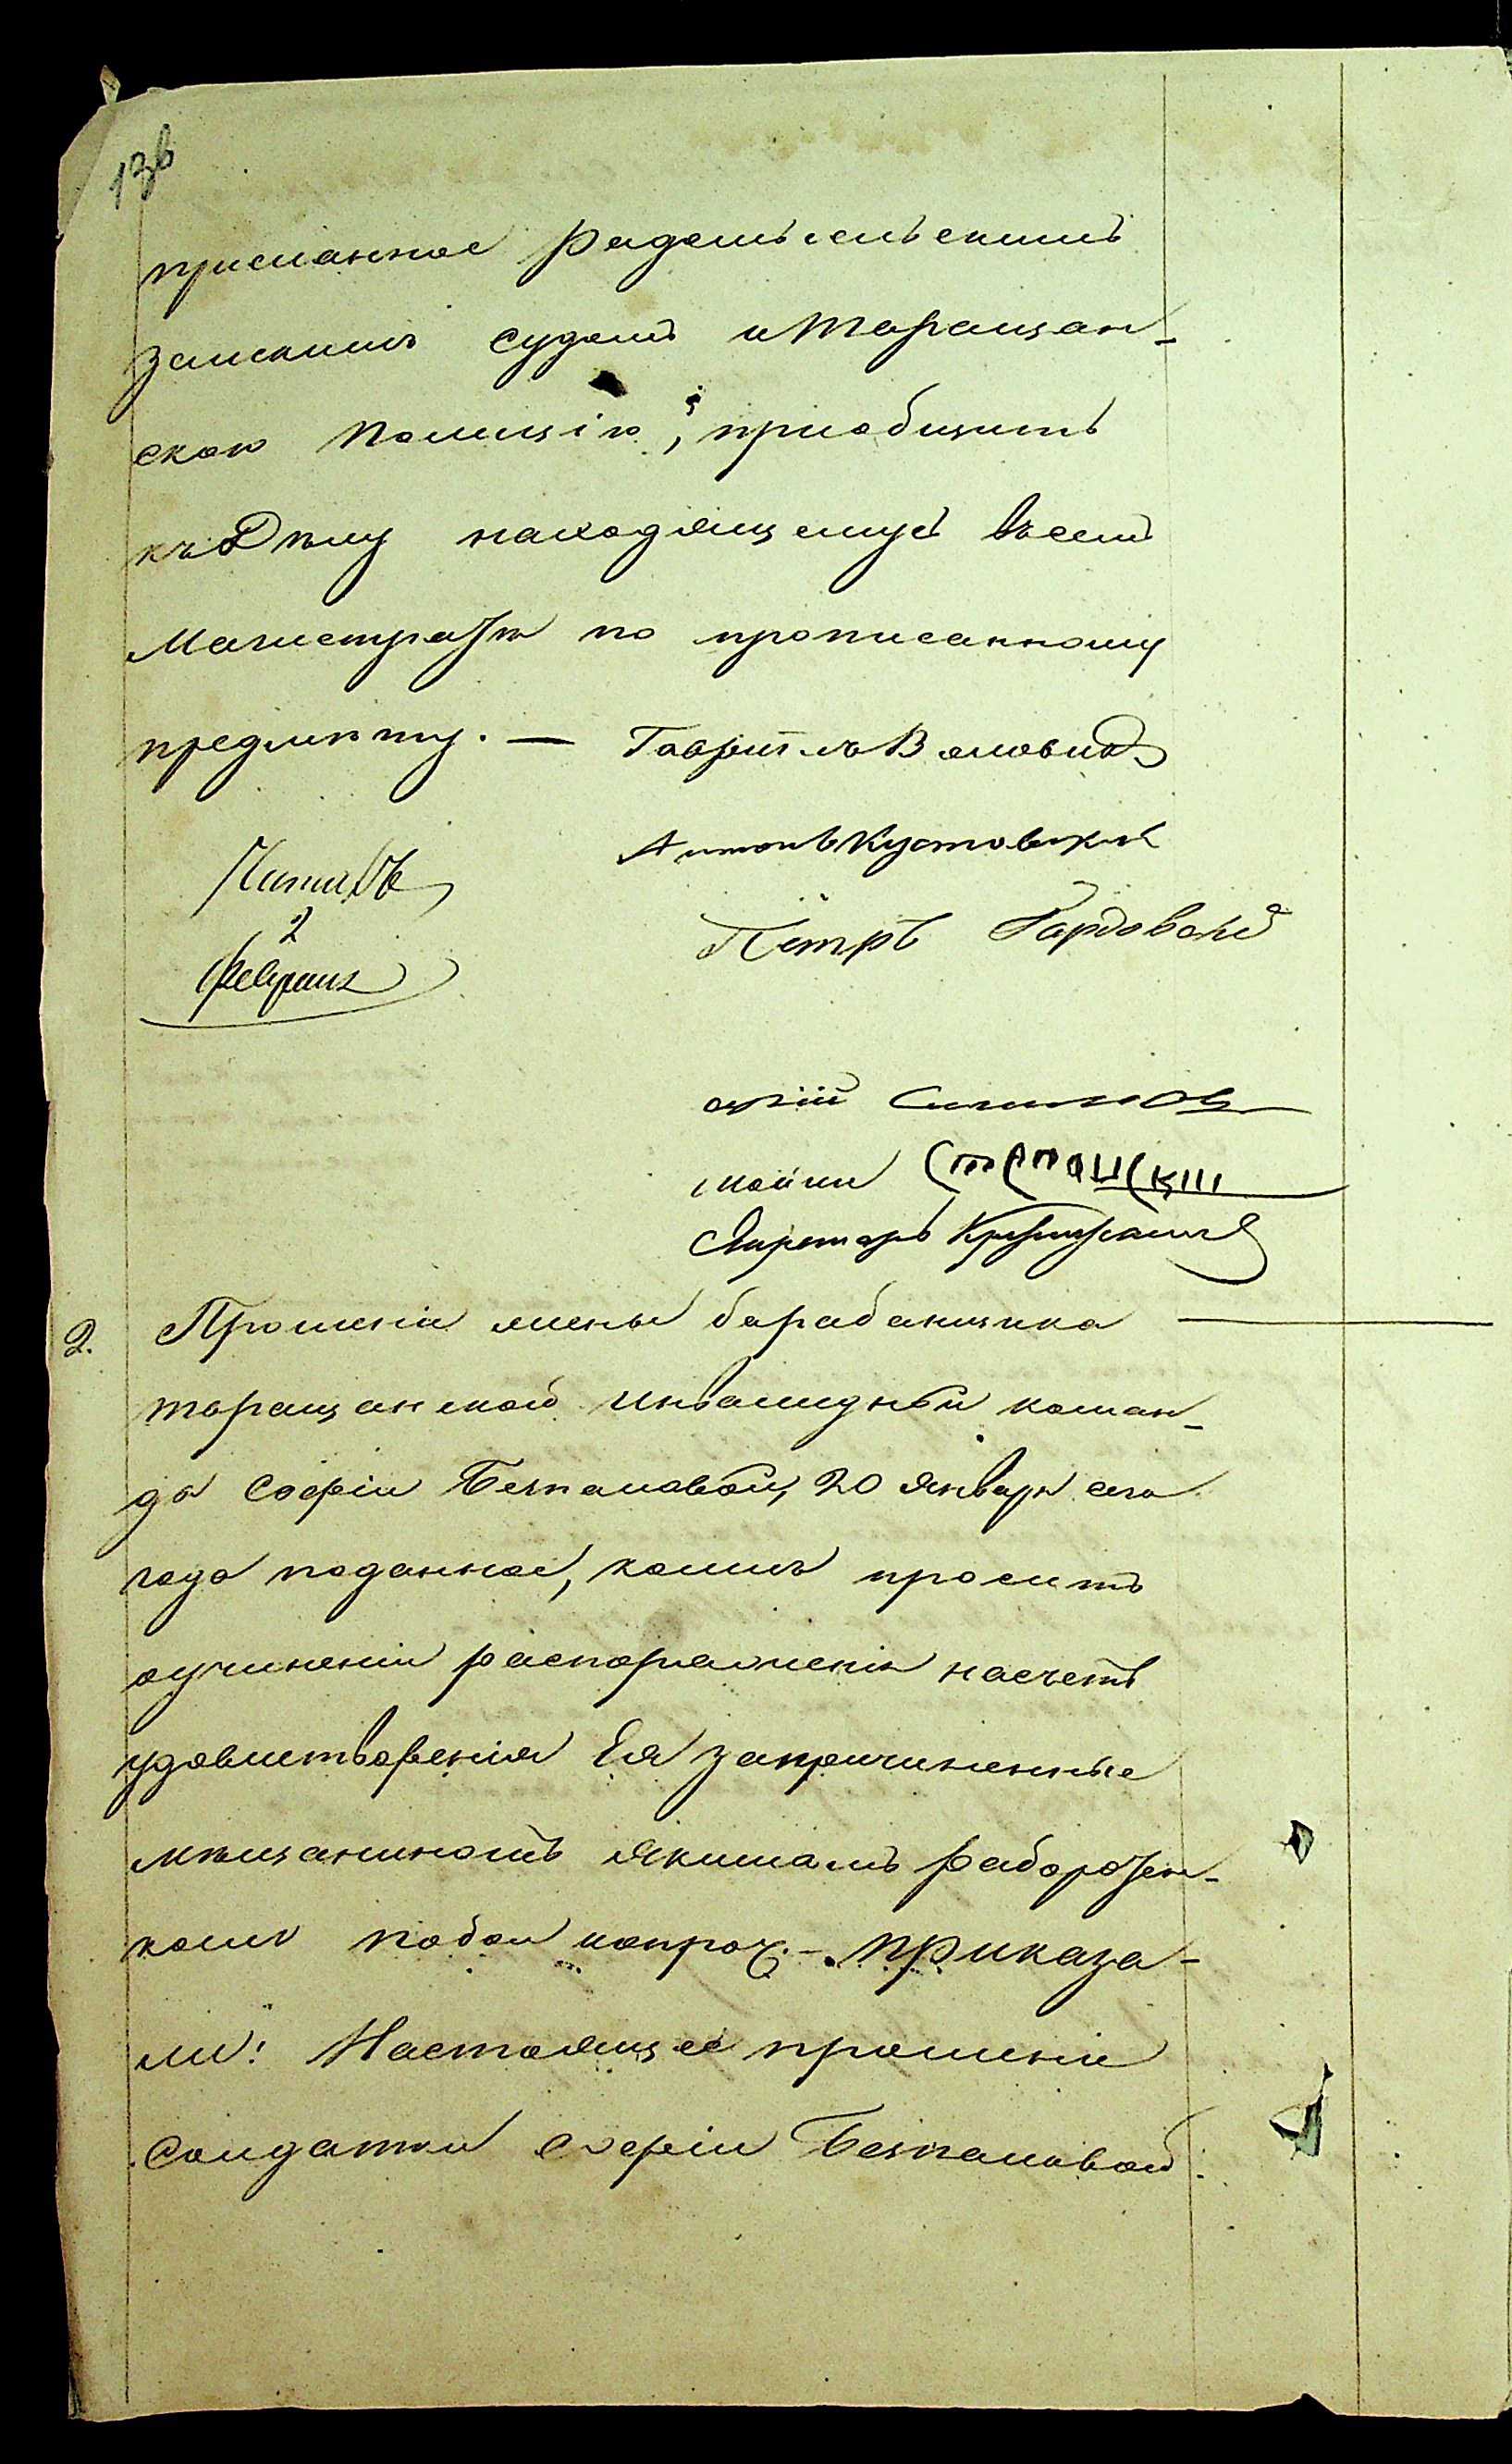 136
присланное Радомысльскимъ
земскимъ судомъ и Таращан-
скою Полициію, приобщить
къ Дѣлу находящемуся въ семъ
Магистратѣ по прописанному
предмѣту. — Гавриілъ Воловикъ
Антонъ Кустовскій
Читалъ
Петръ Гордовскій
2
февраля
Секретарь
2. Прошеніе жены барабанщика
таращанской инвалидной коман-
ды Софіи Безпаловой, 20 январѧ сего
года поданное, коимъ проситъ
оучиненіи распоряженія насчетъ
удовлетворенія Ея запричиненные
мѣщаниномъ Якимомъ
комъ побои ипроч. — Приказа-
ли: Настоящее прошеніе
Солдатки Софіи Безпаловой